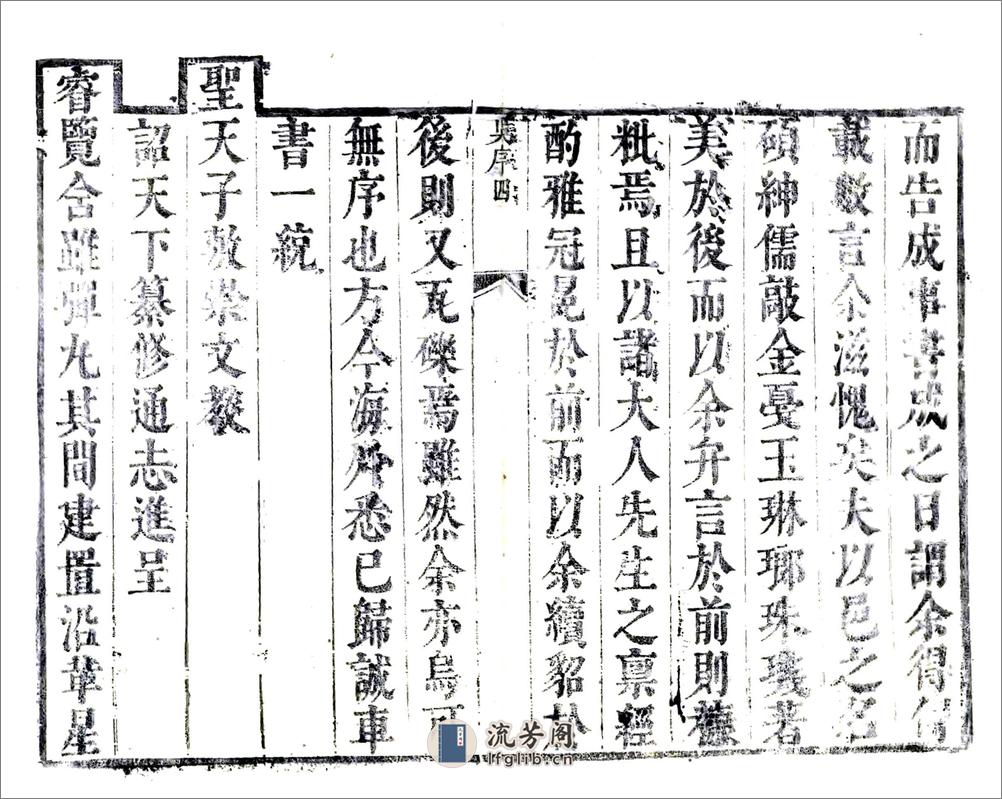 而告成事書成之日謂余得付
載數言余滋愧矣夫以邑之名
碩紳儒敲金戛玉琳瑯珠璣若
美於後而以余弁言於前則糠
粃焉且以諸大人先生之禀經
酌雅冠冕於前而以余續貂於
吳序四
後則又瓦礫焉雖然余亦烏可
無序也方今海外悉已歸誠車
書一統
聖天子敷崇文教
詔天下纂修通志進呈
睿覽含雖彈丸其間建置沿革星
流芳阁
lfglib.cn